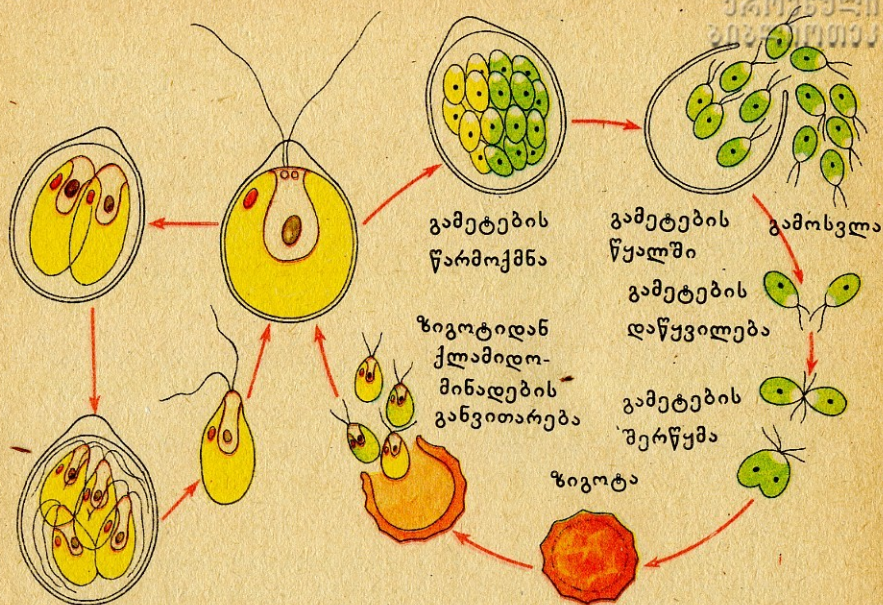 გამეტების
წარმოქმნა
გამეტების გამოსვლა
წყალში
გამეტების
დაწყვილება
გამეტების
შერწყმა
ზიგოტა
ზიგოტიდან
ქლამიდო-
მინადების
განვითარება